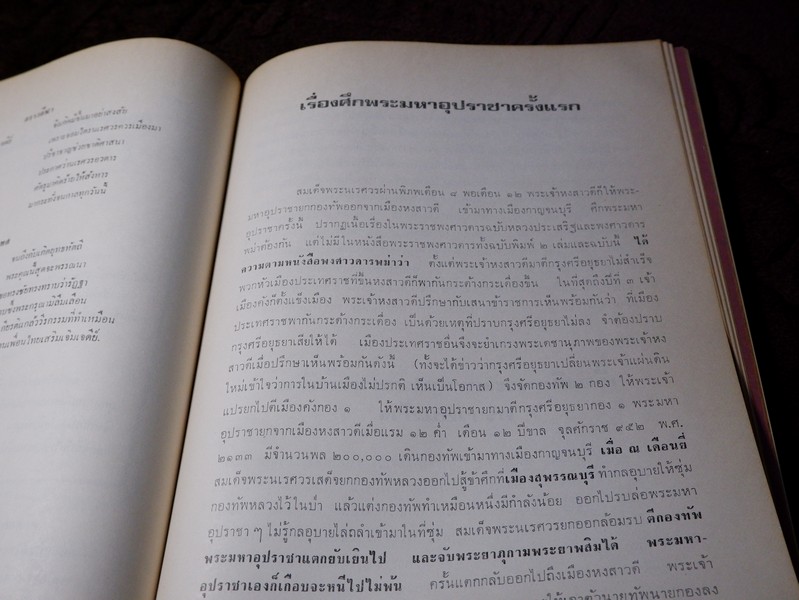 ไม่คิดมีขึ้นมาอย่างสงสัย
ปรีชาชาญช่วยชาติศาสนา
ประกาศว่านเรศวรองอาจ
ศัตรูมาคิดร้ายให้สังหาร
พระคุณนี้สุดจะพรรณนา
เรื่องศึกพระมหาอุปราชาครั้งแรก
สมเด็จพระนเรศวรผ่านพิภพเดือน ๘ พอเดือน ๑๒ พระเจ้าหงสาวดีก็ให้พระ-
มหาอุปราชายกกองทัพออกจากเมืองหงสาวดี เข้ามาทางเมืองกาญจนบุรี ศึกพระมหา
อุปราชาครั้งนี้ ปรากฏเนื้อเรื่องในพระราชพงศาวดารฉบับหลวงประเสริฐและพงศาวดาร
พม่าต้องกัน แต่ไม่มีในหนังสือพระราชพงศาวดารทั้งฉบับพิมพ์ ๒ เล่มและฉบับนี้ ได้
ความตามหนังสือพงศาวดารพม่าว่า ตั้งแต่พระเจ้าหงสาวดีมาตีกรุงศรีอยุธยาไม่สำเร็จ
พวกหัวเมืองประเทศราชที่ขึ้นหงสาวดีก็พากันกระด้างกระเดื่องขึ้น ในที่สุดถึงปีที่ ๓ เจ้า
เมืองคังก็ตั้งแข็งเมือง พระเจ้าหงสาวดีปรึกษากับเสนาข้าราชการเห็นพร้อมกันว่า ที่เมือง
ประเทศราชพากันกระด้างกระเดื่อง เป็นด้วยเหตุที่ปราบกรุงศรีอยุธยาไม่ลง จำต้องปราบ
กรุงศรีอยุธยาเสียให้ได้ เมืองประเทศราชอื่นจึงจะยำเกรงพระเดชานุภาพของพระเจ้าหง
สาวดีเมื่อปรึกษาเห็นพร้อมกันดังนี้ (ทั้งจะได้ข่าวว่ากรุงศรีอยุธยาเปลี่ยนพระเจ้าแผ่นดิน
ใหม่เข้าใจว่าการในบ้านเมืองไม่ปรกติ เห็นเป็นโอกาส) จึงจัดกองทัพ ๒ กอง ให้พระเจ้า
แปรยกไปตีเมืองคังกอง ๑ ให้พระมหาอุปราชายกมาตีกรุงศรีอยุธยากอง ๑ พระมหา
อุปราชายกจากเมืองหงสาวดีเมื่อแรม ๑๒ ค่ำ เดือน ๑๒ ปีขาล จุลศักราช ๙๕๒ พ.ศ.
๒๑๓๓ มีจำนวนพล ๒๐๐,๐๐๐ เดินกองทัพเข้ามาทางเมืองกาญจนบุรี เมื่อ ณ เดือนยี่
สมเด็จพระนเรศวรเสด็จยกกองทัพหลวงออกไปสู้ข้าศึกที่เมืองสุพรรณบุรี ทำกลอุบายให้ซุ่ม
กองทัพหลวงไว้ในป่า แล้วแต่งกองทัพทำเหมือนหนึ่งมีกำลังน้อย ออกไปรบล่อพระมหา
อุปราชา ๆ ไม่รู้กลอุบายไล่ถลำเข้ามาในที่ซุ่ม สมเด็จพระนเรศวรยกออกล้อมรบ ตีกองทัพ
พระมหาอุปราชาแตกยับเยินไป และจับพระยาภุกามพระยาพสิมได้ พระมหา-
อุปราชาเองก็เกือบจะหนีไปไม่พ้น ครั้นแตกกลับออกไปถึงเมืองหงสาวดี พระเจ้า